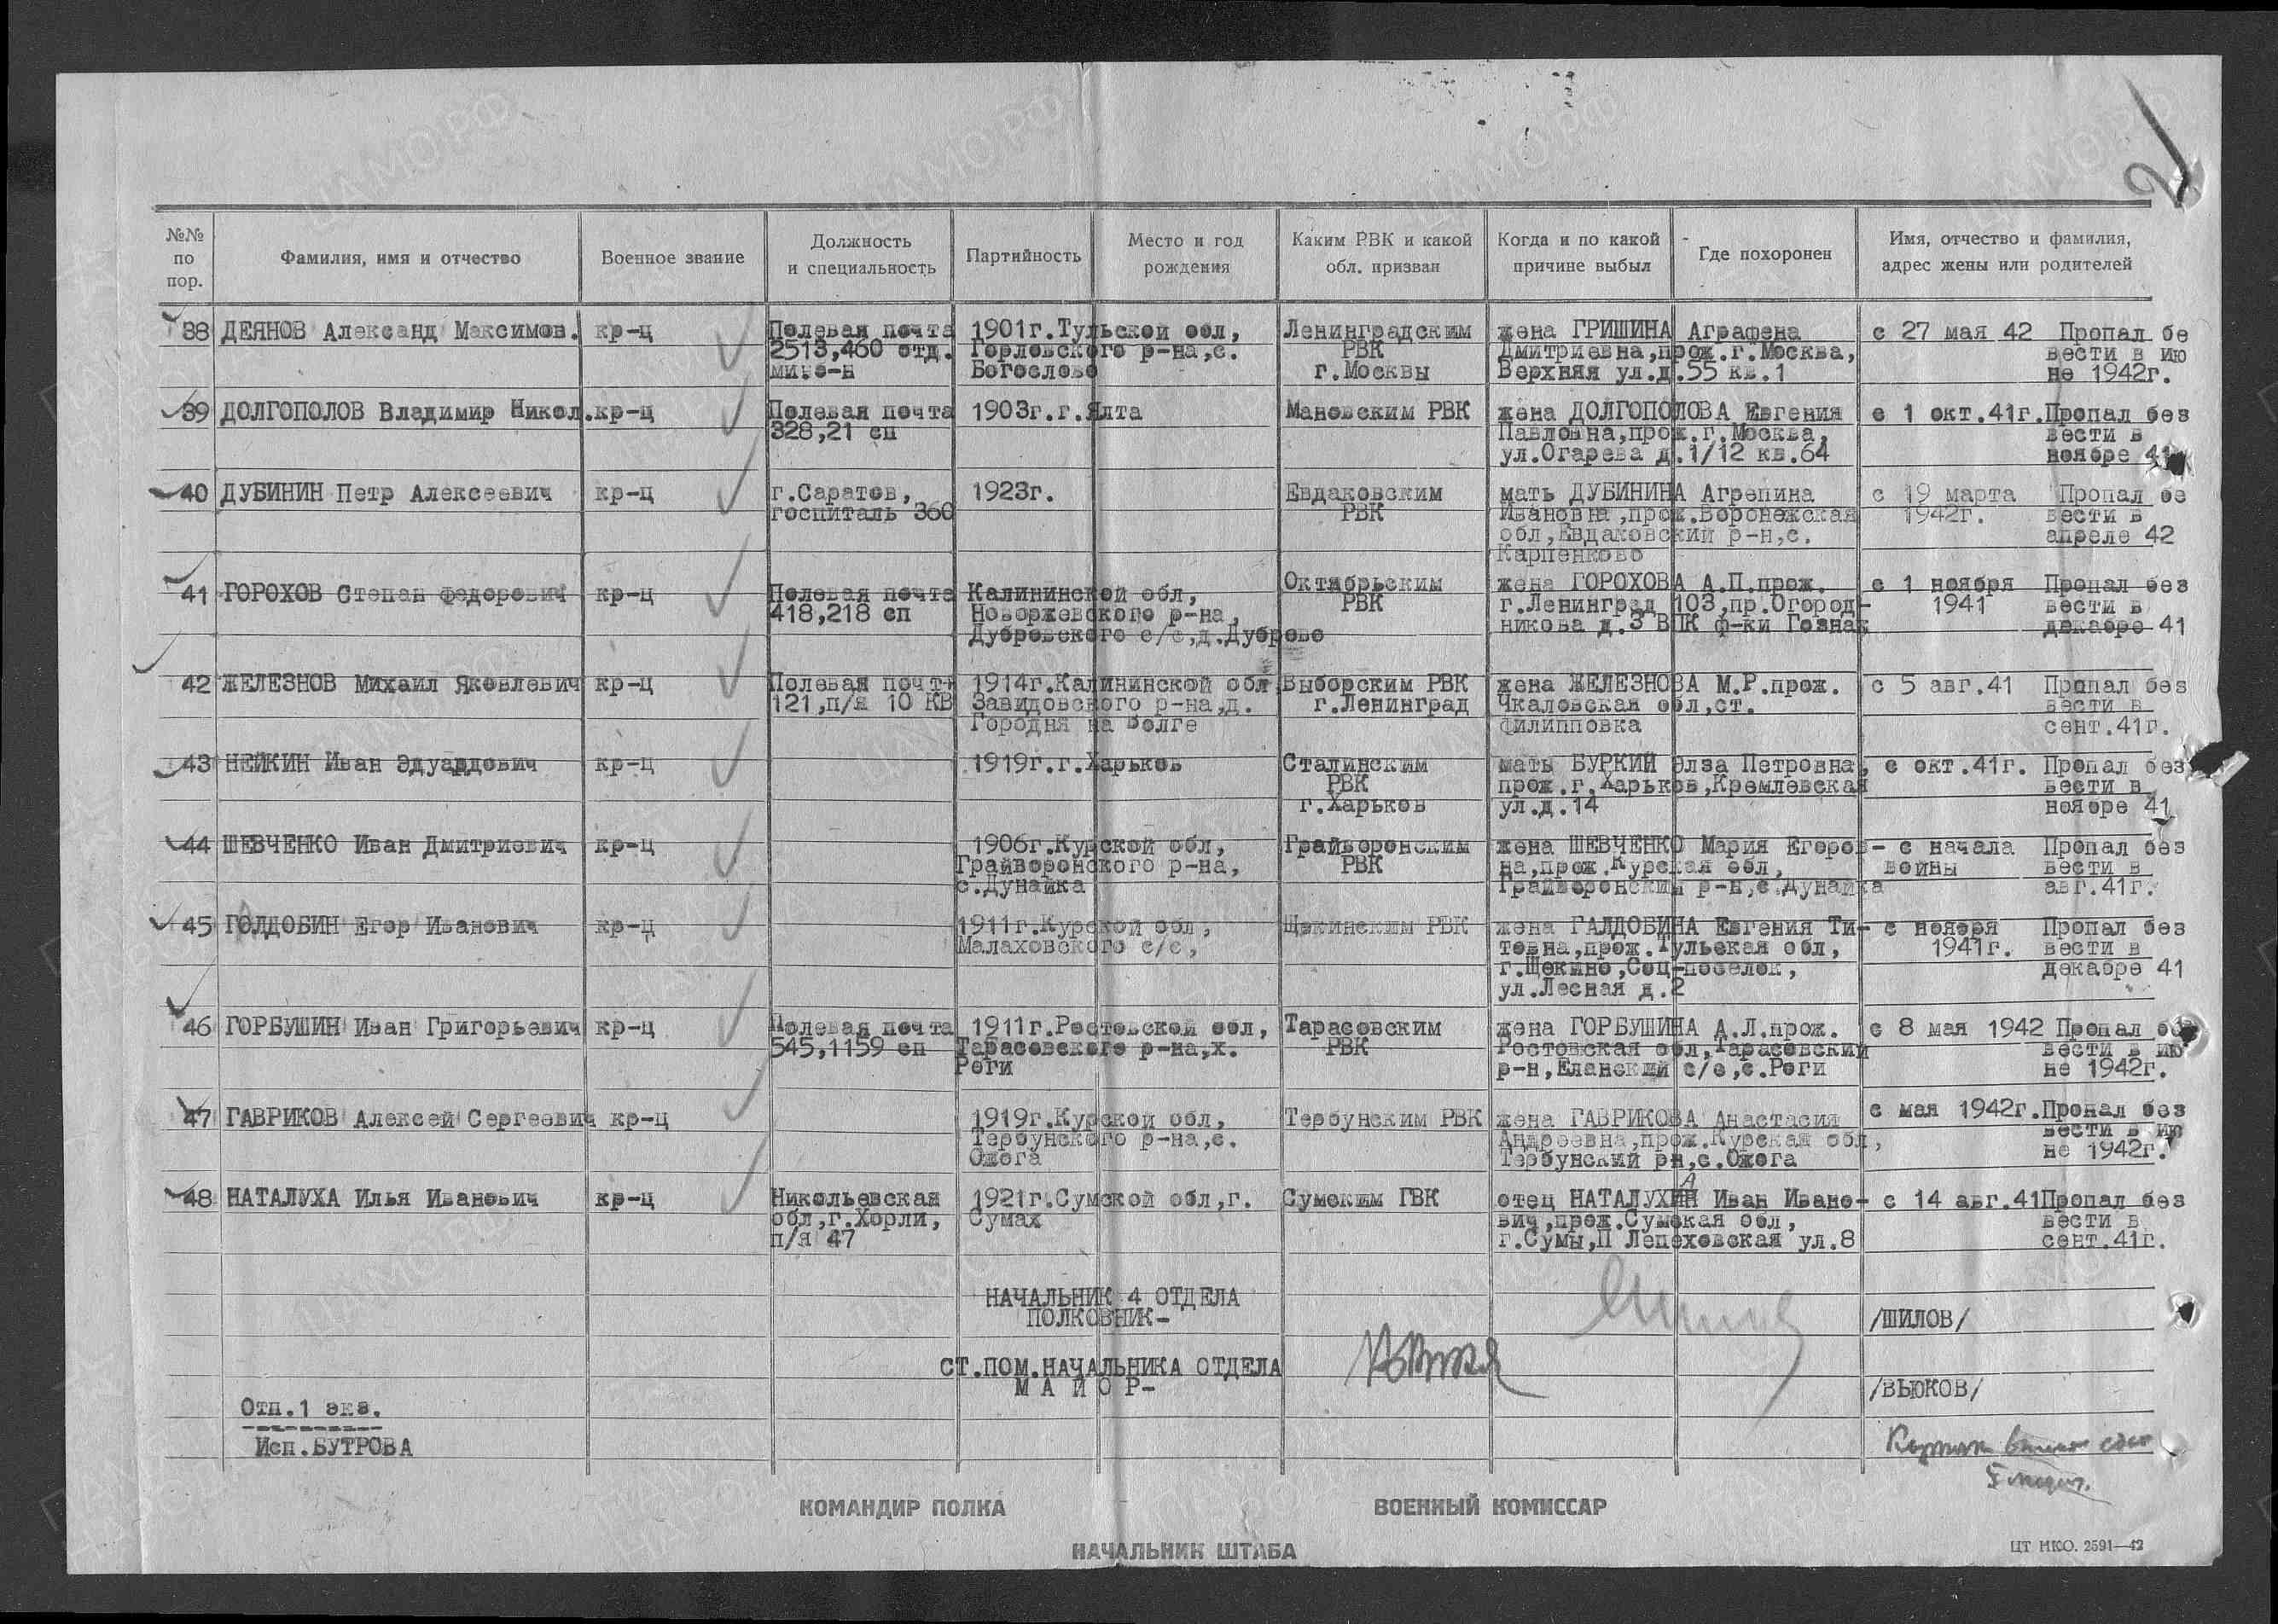 21
№№ по пор.
Фамилия, имя и отчество
Военное звание
Должность и специальность
Партийность
Место и год рождения
Каким РВК и какой обл. призван
Когда и по какой причине выбыл
Где похоронен
Имя, отчество и фамилия, адрес жены или родителей
38 ДЕЯНОВ Александ Максимов. кр-ц Полевая почта 1901г.Тульской обл, Ленинградским жена ГРИШИНА Аграфена с 27 мая 42 Пропал бе
2513,460 отд. Горловского р-на,с. РВК Дмитриевна,прож.г.Москва, вести в ию
мино-н Богослово г.Москвы Верхняя ул.д.55 кв.1 не 1942г.
39 ДОЛГОПОЛОВ Владимир Никол. кр-ц Полевая почта 1903г.г.Ялта Мановским РВК жена ДОЛГОПОЛОВА Евгения с 1 окт.41г. Пропал без
328,21 сп Павловна,прож.г.Москва, вести в
ул.Огарева д.1/12 кв.64 ноябре 41
40 ДУБИНИН Петр Алексеевич кр-ц г.Саратов, 1923г. Евдаковским мать ДУБИНИНА Агрепина с 19 марта Пропал бе
госпиталь 360 РВК Ивановна,прож.Воронежская 1942г. вести в
обл,Евдаковский р-н,с. апреле 42
Карпенково
41 ГОРОХОВ Степан Федорович кр-ц Полевая почта Калининской обл, Октябрьским жена ГОРОХОВА А.П.прож. с 1 ноября Пропал без
418,218 сп Новоржевского р-на, РВК г.Ленинград 103,пр.Огород- 1941 вести в
Дубровского с/с,д.Дуброво никова д.3 ВПК ф-ки Гознак декабре 41
42 ЖЕЛЕЗНОВ Михаил Яковлевич кр-ц Полевая почта 1914г.Калининской обл Выборским РВК жена ЖЕЛЕЗНОВА М.Р.прож. с 5 авг.41 Пропал без
121,п/я 10 КВ Завидовского р-на,д. г.Ленинград Чкаловская обл,ст. вести в
Городня на Волге Филипповка сент.41г.
43 НЕЙКИН Иван Эдуардович кр-ц 1919г.г.Харьков Сталинским мать БУРКИН Элза Петровна, с окт.41г. Пропал без
РВК прож.г.Харьков,Кремлевская вести в
г.Харьков ул.д.14 ноябре 41
44 ШЕВЧЕНКО Иван Дмитриевич кр-ц 1906г.Курской обл, Грайворонским жена ШЕВЧЕНКО Мария Егоров- с начала Пропал без
Грайворонского р-на, РВК на,прож.Курская обл, войны вести в
с.Дунайка Грайворонский р-н,с.Дунайка авг.41г.
45 ГОЛДОБИН Егор Иванович кр-ц 1911г.Курской обл, Щекинским РВК жена ГАЛДОБИНА Евгения Ти- с ноября Пропал без
Малаховского с/с, товна,прож.Тульская обл, 1941г. вести в
г.Щекино,Соц-поселок, декабре 41
ул.Лесная д.2
46 ГОРБУШИН Иван Григорьевич кр-ц Полевая почта 1911г.Ростовской обл, Тарасовским жена ГОРБУШИНА А.Л.прож. с 8 мая 1942 Пропал
545,1159 сп Тарасовского р-на,х. РВК Ростовская обл,Тарасовский вести в ию
Роги р-н,Еланский с/с,с.Роги не 1942г.
47 ГАВРИКОВ Алексей Сергеевич кр-ц 1919г.Курской обл, Тербунским РВК жена ГАВРИКОВА Анастасия с мая 1942г. Пропал без
Тербунского р-на,с. Андреевна,прож.Курская обл, вести в ию
Ожога Тербунский рн,с.Ожога не 1942г.
48 НАТАЛУХА Илья Иванович кр-ц Никольевская 1921г.Сумской обл,г. Сумским ГВК отец НАТАЛУХИН Иван Ивано- с 14 авг.41 Пропал без
обл,г.Хорли, Сумах вич,прож.Сумская обл, вести в
п/я 47 г.Сумы,П Лепеховская ул.8 сент.41г.
НАЧАЛЬНИК 4 ОТДЕЛА
ПОЛКОВНИК- /ШИЛОВ/
СТ.ПОМ.НАЧАЛЬНИКА ОТДЕЛА
МАЙОР- /ВЬЮКОВ/
Отп.1 экз.
Исп.БУТРОВА
КОМАНДИР ПОЛКА
ВОЕННЫЙ КОМИССАР
НАЧАЛЬНИК ШТАБА
ЦТ НКО. 2591—42